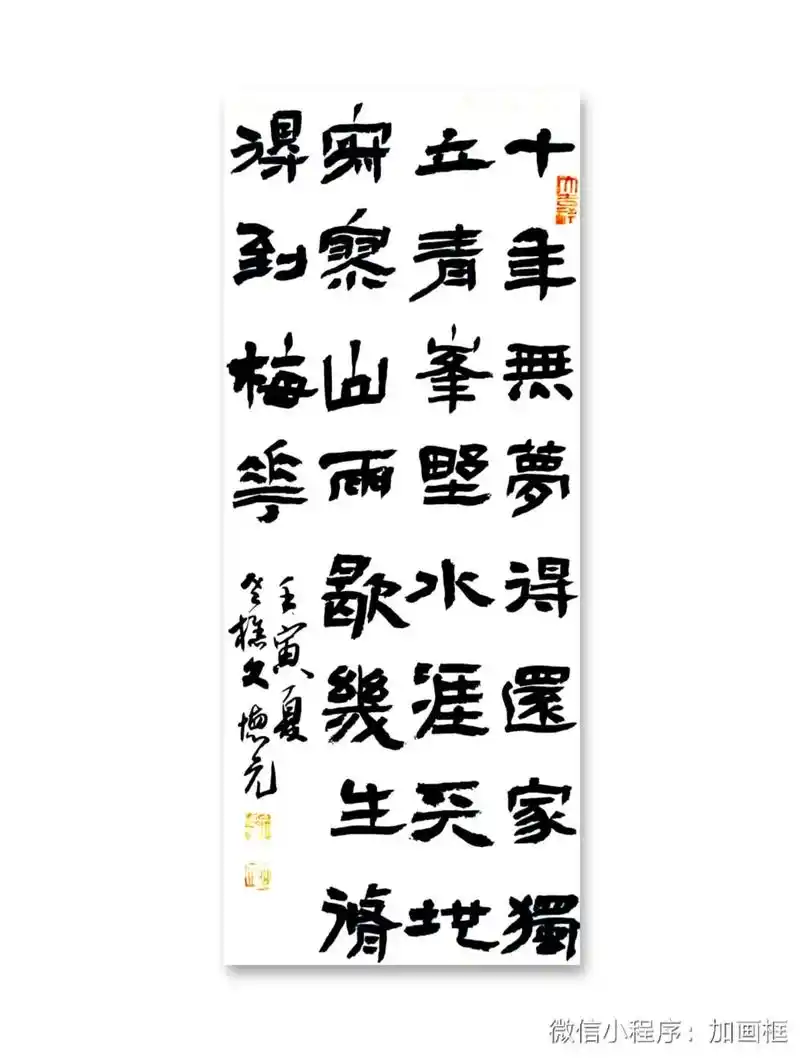 十年無夢得還家獨
立青峯野水涯天地
寂寥山雨歇幾生脩
得到梅花
壬寅夏
微信小程序：加画框